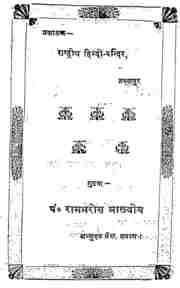 प्रकाशक—
राष्ट्रीय हिन्दी-मन्दिर,
जबलपुर
मुद्रक—
पं० रामभरोस मालवीय
अभ्युदय प्रेस, प्रयाग ।